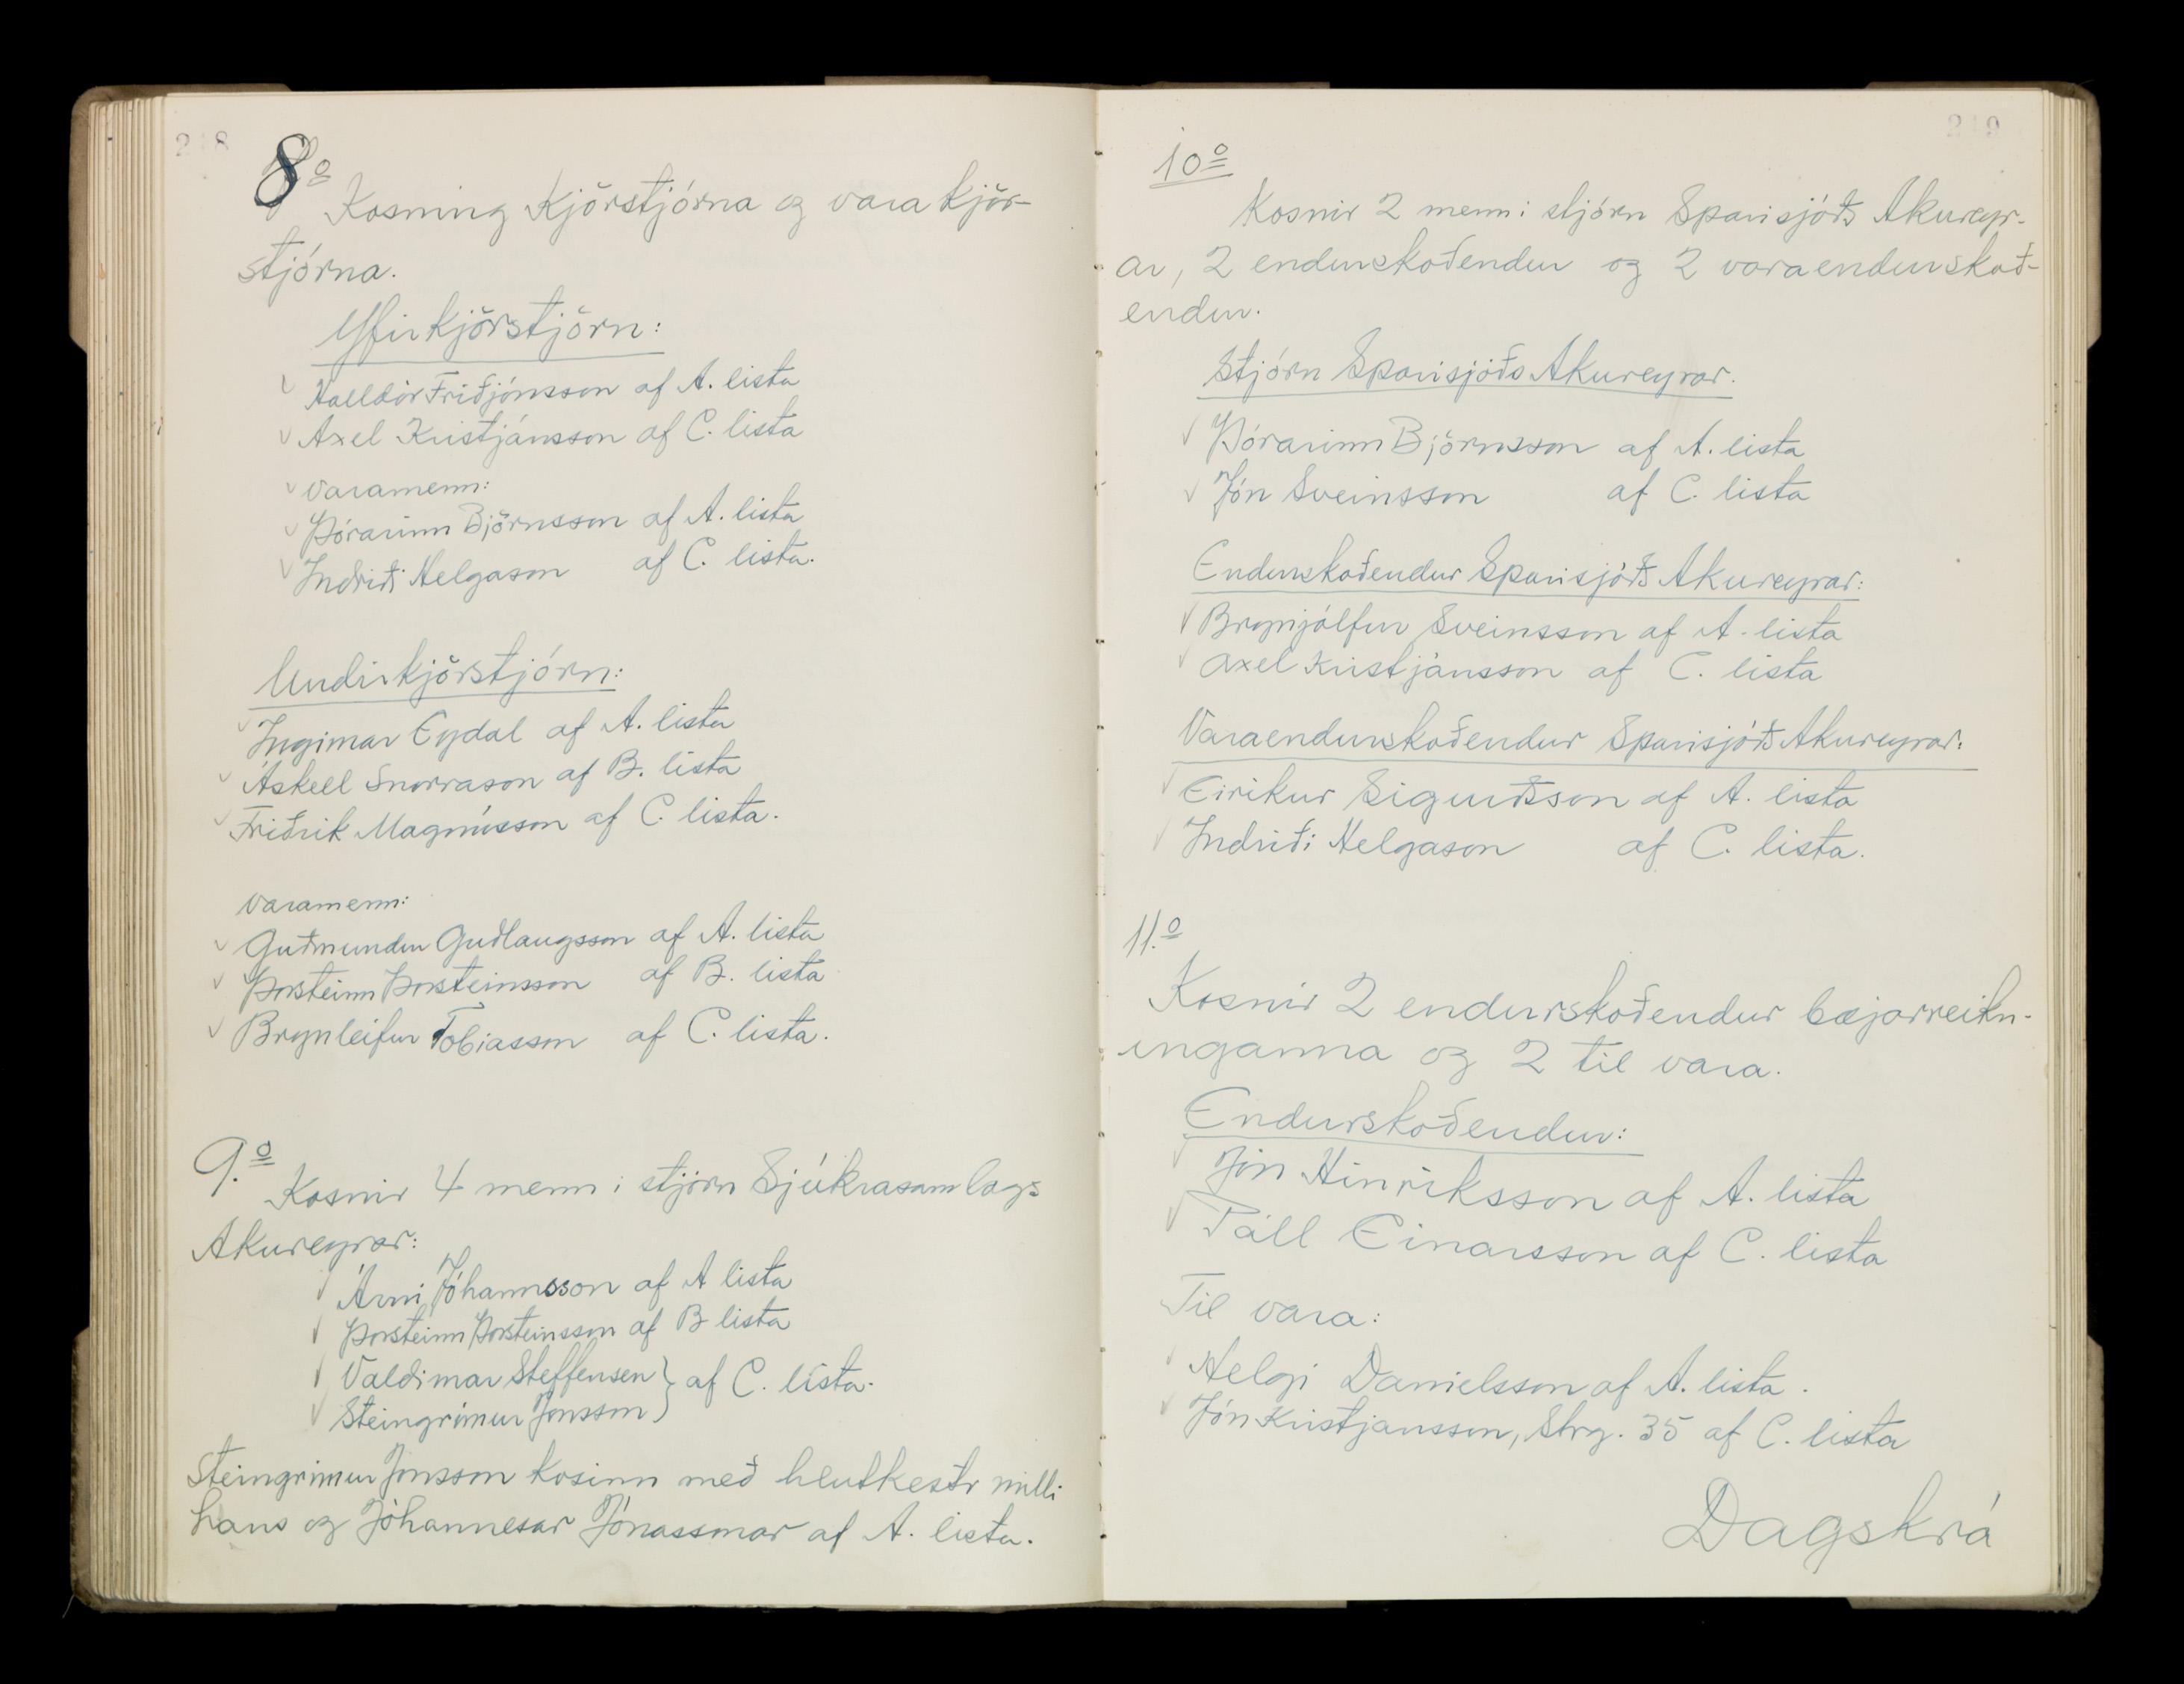 248
8º
Kosning Kjörstjórna og vara kjör-
stjórna.
Yfirkjörstjörn:
Halldór Friðjónsson af A. lista
Axel Kristjánsson af C. lista
Varamenn:
Þórarinn Björnsson af A. lista
Indriði Helgason af C. lista.
Undirkjörstjórn:
Ingimar Eydal af A. lista
Áskell Snorrason af B. lista
Friðrik Magnússon af C. lista.
Varamenn:
Guðmundur Guðlaugsson af A. lista
Þorsteinn Þorsteinsson af B. lista
Brynleifur Tobiasson af C. lista.
9.º
Kosnir 4 menn í stjórn Sjúkrasamlags
Akureyrar:
Árni Jóhannsson af A lista
Þorsteinn Þorsteinsson af B lista
Valdimar Steffensen } af C. lista.
Steingrímur Jónsson
Steingrimur Jónsson kosinn með hlutkesti milli
hans og Jóhannesar Jónassonar af A. lista.
249
10º
Kosnir 2 menn í stjórn Sparisjóðs Akureyr-
ar, 2 endurskoðendur og 2 varaendurskoð-
endur.
Stjórn Sparisjóðs Akureyrar.
Þórarinn Björnsson af A. lista
Jón Sveinsson af C. lista
Endurskoðendur Sparisjóðs Akureyrar:
Brynjólfur Sveinsson af A. lista
Axel Kristjánsson af C. lista
Varaendurskoðendur Sparisjóðs Akureyrar:
Eirikur Sigurðsson af A. lista
Indriði Helgason af C. lista.
11.º
Kosnir 2 endurskoðendur bæjarreikn-
inganna og 2 til vara.
Endurskoðendur:
Jón Hinriksson af A. lista
Páll Einarsson af C. lista
Til vara:
Helgi Danielsson af A. lista.
Jón Kristjansson, Strg. 35 af C. lista
Dagskrá